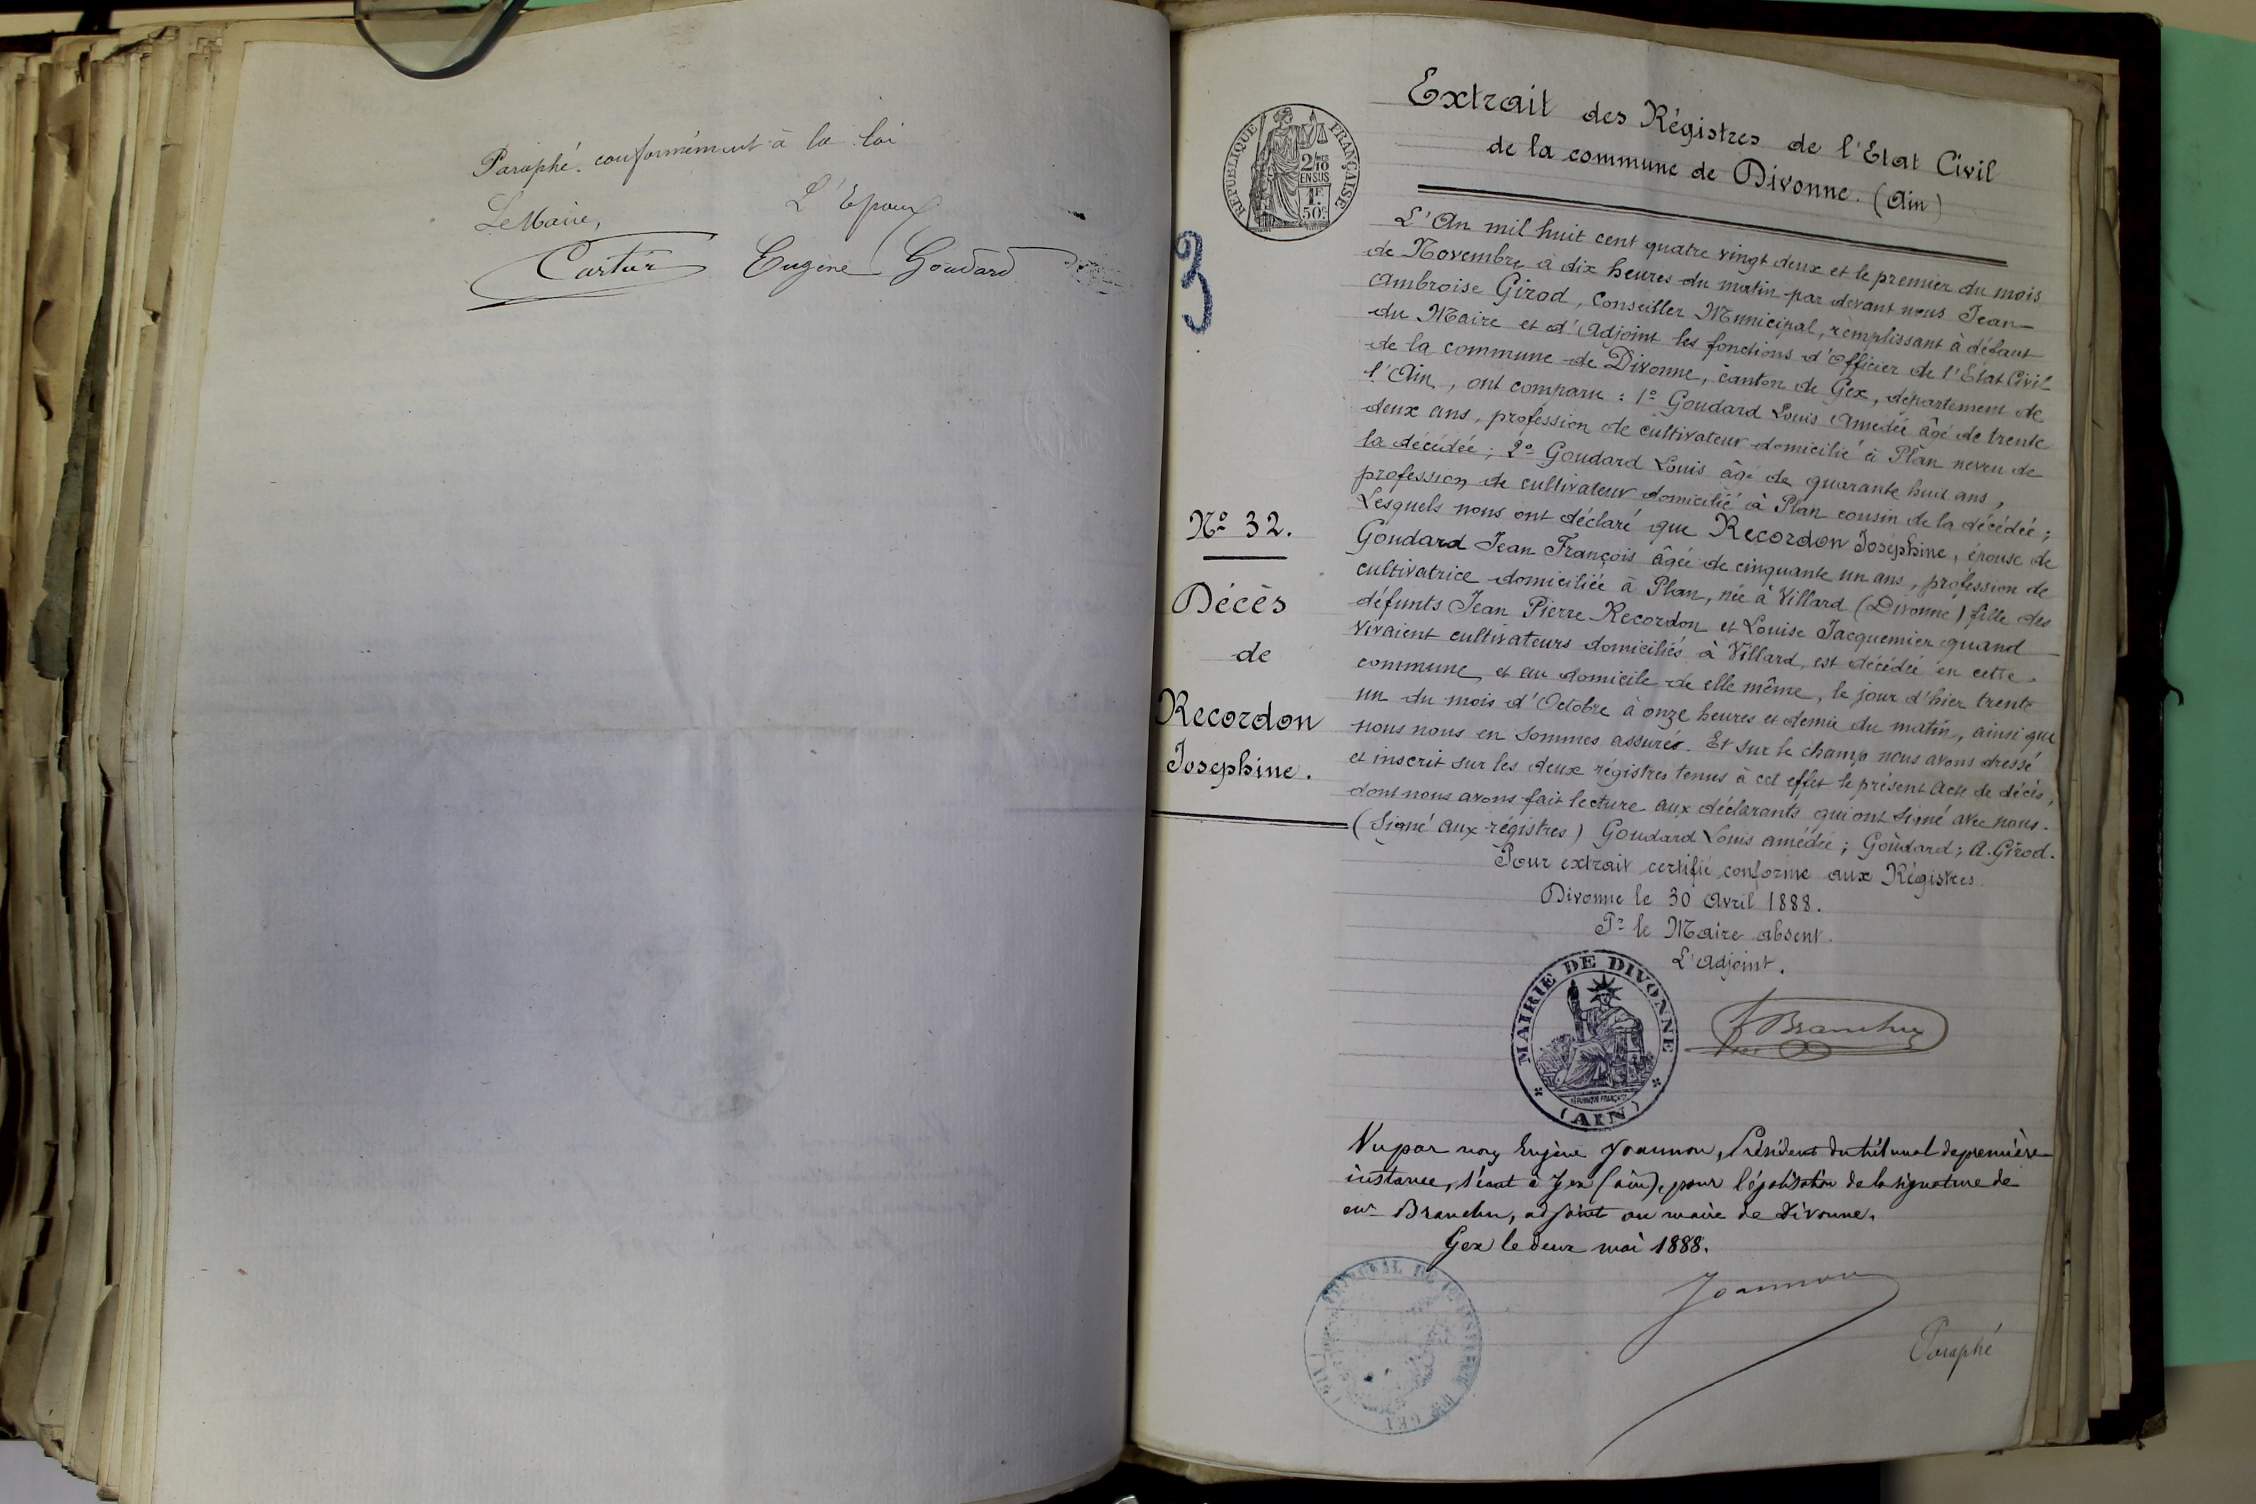 Paraphé conformément à la loi
Le Maire,
L'Epoux
Eugène Goudard
Extrait des Régistres de l'Etat Civil
de la commune de Divonne. (Ain)
REPUBLIQUE FRANÇAISE
2/10
EN SUS
1F.
50c
3
L'An mil huit cent quatre vingt deux et le premier du mois
de Novembre à dix heures du matin par devant nous Jean-
Ambroise Girod, Conseiller Municipal, remplissant à défaut
du Maire et d'Adjoint les fonctions d'Officier de l'Etat Civil
de la commune de Divonne, canton de Gex, département de
l'Ain, ont comparu : 1º Goudard Louis Amédée âgé de trente
deux ans, profession de cultivateur domicilié à Plan neveu de
la décédée ; 2º Goudard Louis âgé de quarante huit ans,
profession de cultivateur domicilié à Plan cousin de la décédée ;
Lesquels nous ont déclaré que Recordon Joséphine, épouse de
Goudard Jean François âgée de cinquante un ans, profession de
cultivatrice domiciliée à Plan, née à Villard (Divonne) fille des
défunts Jean Pierre Recordon et Louise Jacquemier quand
vivaient cultivateurs domiciliés à Villard, est décédée en cette
commune et au domicile de elle même, le jour d'hier trente
un du mois d'Octobre à onze heures et demie du matin, ainsi que
nous nous en sommes assurés. Et sur le champ nous avons dressé
et inscrit sur les deux régistres tenus à cet effet le présent Acte de décès,
dont nous avons fait lecture aux déclarants qui ont signé avec nous.
(Signé aux régistres) Goudard Louis amédée ; Goudard ; A. Girod.
Nº 32.
Décès
de
Recordon
Josephine.
Pour extrait certifié conforme aux Régistres
Divonne le 30 Avril 1888.
Pr le Maire absent.
L'Adjoint.
MAIRIE DE DIVONNE
REPUBLIQUE FRANÇAISE
(AIN)
Branchu
Vu par nous Eugène Joannon, Président du tribunal de première
instance, séant à Gex (ain), pour légalisation de la signature de
mr Branchu, adjoint au maire de Divonne.
Gex le deux mai 1888.
Joannon
Paraphé